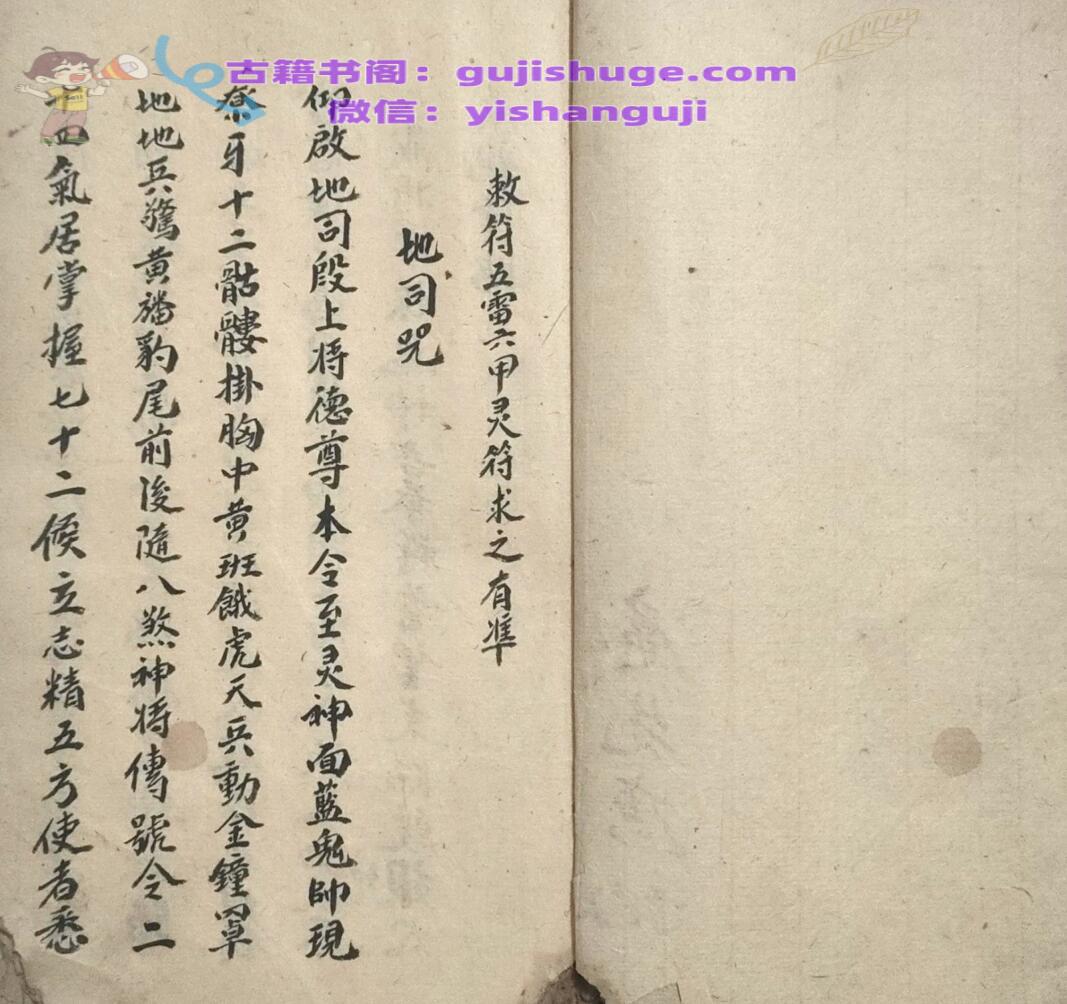 古籍书阁：gujishuge.com
微信：yishanguji
敕符五雷六甲灵符求之有準
地司咒
仰啟地司殷上将德尊本令至灵神面藍鬼帥現
牙十二骷髏掛胸中黄班餓虎天兵動金鐘罩
地地兵驚黄旛豹尾前後隨八煞神将傳號令二
氣居掌握七十二候立志精五方使者悉